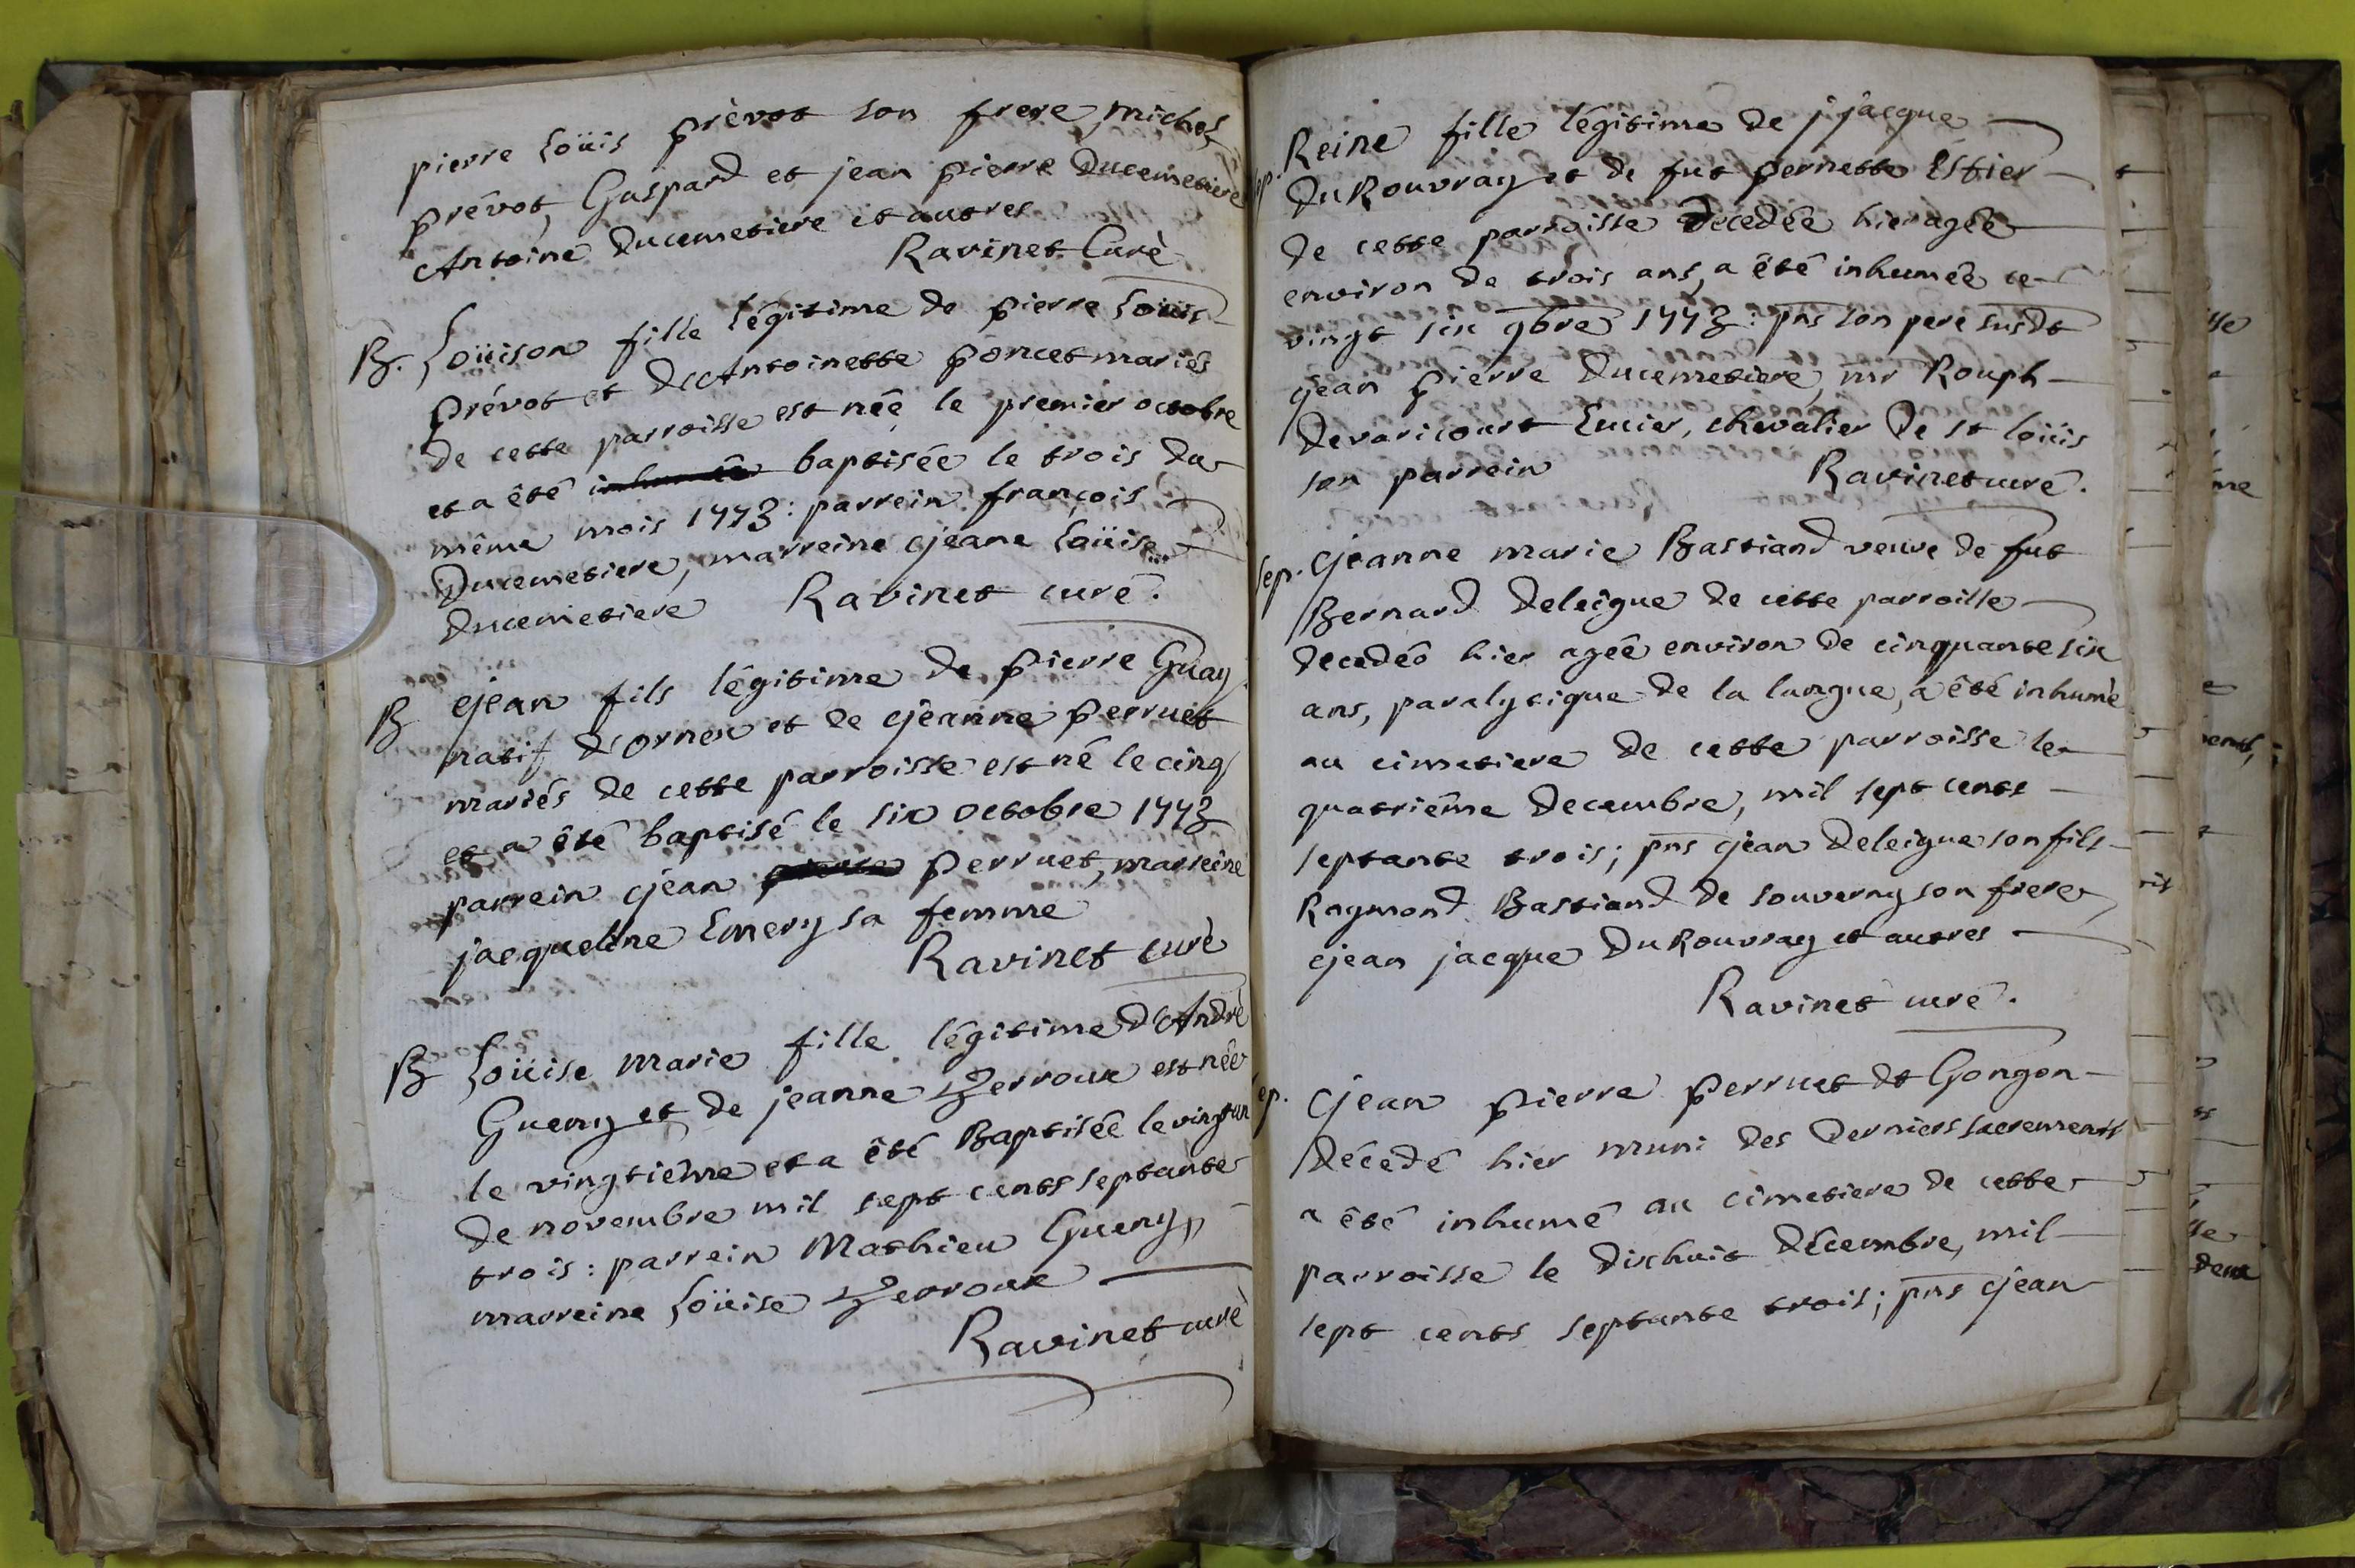 pierre Loüis prévot son frere, michel
prévot, Gaspard et jean pierre Ducimetiere
Antoine Ducemetiere et autres
Ravinet Curé
B. Loüison fille légitime de pierre Loüis
prévot et d'Antoinette poncet mariés
de cette parroisse est née le premier octobre
et a été inhumée baptisée le trois du
même mois 1773 : parrein françois
Ducemetiere, marreine jeane Loüise
Ducemetiere Ravinet curé.
B jean fils légitime de pierre Guay
natif d'ornex et de jeanne perruet
mariés de cette parroisse est né le cinq
et a été baptisé le six octobre 1773
parrein jean pierre perruet, marreine
jacqueline Emery sa femme
Ravinet curé
B Loüise Marie fille légitime d'André
Gueny et de jeanne Verroux est née
le vingtiéme et a été Baptisée le vingt un
de novembre mil sept cents septante
trois : parrein Mathieu Gueny,
marreine Loüise Verroux
Ravinet curé
ep. Reine fille légitime de j jacque
DuRouvray et de fut pernette Estier
de cette parroisse decedée hier agée
environ de trois ans, a été inhumée ce
vingt six 9bre 1773 : pns son pere susdt
jean pierre Ducemetiere, mr Rouph
devaricourt Ecuier, chevalier de st loüis
son parrein Ravinet curé.
sep. jeanne marie Bastiand veuve de fut
Bernard Deleigue de cette parroisse
decedéé hier agéé environ de cinquante six
ans, paralytique de la langue, a été inhumé
au cimetiere de cette parroisse le
quatriéme decembre, mil sept cents
septante trois ; pns jean Deleigue son fils
Raymond Bastiand de souverny son frere
jean jacque DuRouvray et autres
Ravinet curé.
ep. jean pierre perruet dt Gongon
décedé hier muni des derniers sacrements
a été inhumé au cimetiere de cette
parroisse le dixhuit décembre, mil
sept cents septante trois ; pns jean